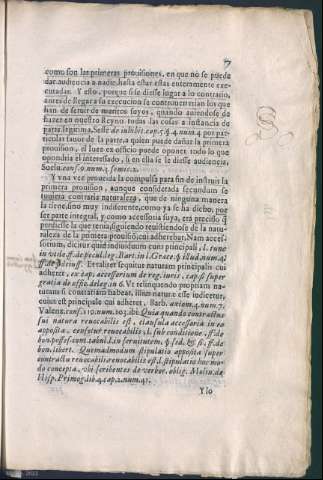 7
como son las primeras prouisiones, en que no se puede
dar audiencia a nadie, hasta estar estas enteramente exe-
cutadas. Y esto, porque si se diesse lugar a lo contrario,
antes de llegar a su execucion se controuertirian los que
han de seruir de mueros suyos, quando auiendose de
hazer en nuestro Reyno todas las cosas a instancia de
parte legitima, Sesse de inhibit. cap. 5. § 4. num. 4 por par-
ticular fauor de la parte, a quien puede dañar la primera
prouision, el Iuez ex officio puede oponer todo lo que
opondria el interessado, si en ella se le diesse audiencia,
Socin. conf. 9. num. 3
Y vna vez proueida la compulsa para fin de instruir la
primera prouision, aunque considerada secundum se
tuuiera contraria naturaleza, que de ninguna manera
la tiene, sino muy indiferente, como ya se ha dicho, por
ser parte integral, y como accessoria suya, era preciso q̃
perdiesse la que tenia, siguiendo reuistiendose de la natu-
raleza de la primera prouision, cui adherebat. Nam acces-
sorium, dicitur quid indiuiduum cum principali, l. nunc
in verb. ff. de pecul. leg. Bart. in l. Grace. § illud, num. 4.
ff. de Et taliter sequitur naturam principalis cui
adheret, ex cap. accessorium de reg. iuris, cap. si super
gratia de offic. deleg. in 6. Vt relinquendo propriam na-
turam si contrariam habeat, illius naturæ esse iudicetur,
cuius est principale cui adheret, Barb. axiom. 4. num. 7.
Valenz. conf. 110. num. 103. ibi: Quia quando contractus
sui natura reuocabilis est, clausula accessoria in eo
apposita, censetur reuocabilis. l. sub conditione, ff. de
bon. posses. cum tabul. l. in seruitutem, § sed & si. ff. de
bon. libert. Quemadmodum stipulatio apposita super
contractu reuocabili reuocabilis est. l. stipulatio hoc mo-
do concepta, vbi scribentes de verbor. oblig. Molin. de
Hisp. Primog. lib. 4. cap. 2. num. 41.
Y lo